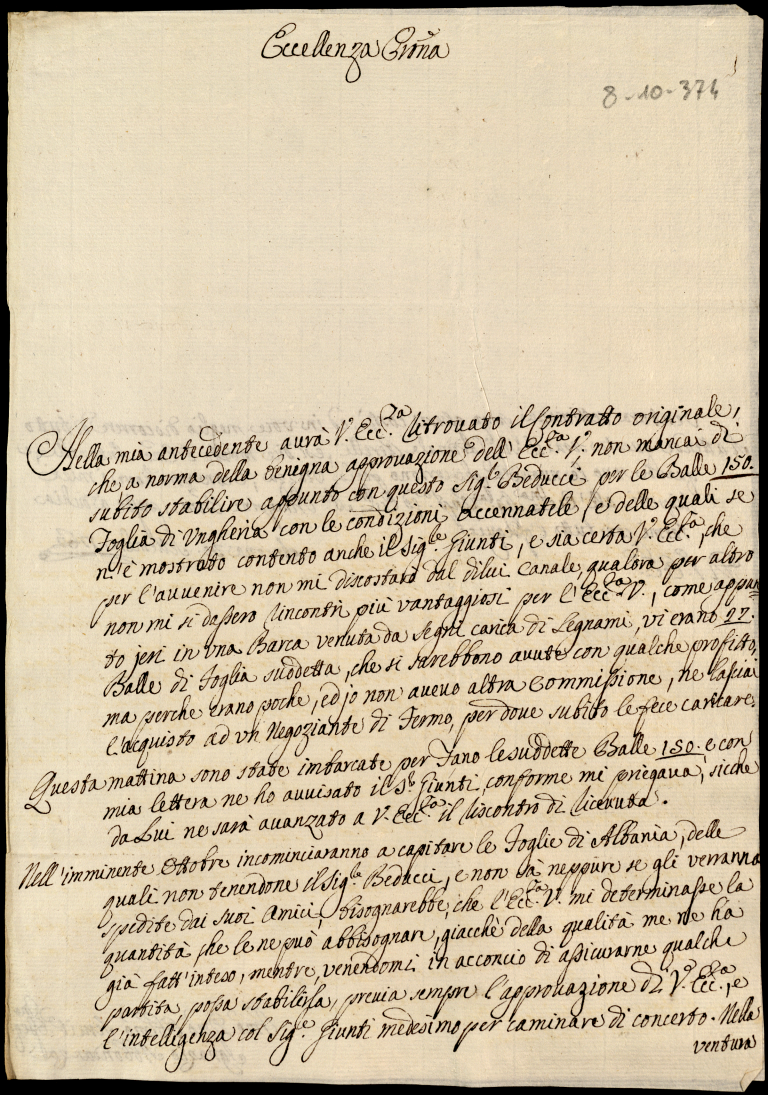 Eccellenza Prõna
8-10-374
Nella mia antecedente aurà V. Ecc.za ritrovato il Contratto originale,
che a norma della benigna approvazione dell' Ecc.za V. non mancai di
subito stabilire appunto con questo Sig.e Beducci per le Balle 150.
Foglia di Ungheria con le condizioni accennatele, e delle quali se
n'è mostrato contento anche il Sig.le Giunti, e sia certa V. Ecc.za, che
per l'avvenire non mi discostarò dal dilui Canale, qualora per altro
non mi si dassero rincontri più vantaggiosi per l'Ecc.za V., come appun=
to jeri in una Barca venuta da Segni carica di Legnami, vi erano 27.
Balle di Foglia suddetta, che si sarebbono avute con qualche profitto,
ma perche erano poche, ed jo non avevo altra Commissione, ne lasciai
l'acquisto ad un Negoziante di Fermo, per dove subito le fece caricare.
Questa mattina sono state imbarcate per Fano le suddette Balle 150: e con
mia lettera ne ho avvisato il S.r Giunti, conforme mi priegava, sicche
da Lui ne sarà avanzato a V. Ecc.za il riscontro di ricevuta.
Nell'imminente Ottobre incominciaranno a capitare le Foglie di Albania, delle
quali non tenendone il Sig.e Beducci, e non sà neppure se gli verranno
spedite dai suoi Amici, bisognarebbe, che l'Ecc.za V. mi determinasse la
quantità che le ne può abbisognare, giacchè della qualità me ne ha
già fatt'inteso, mentre, venendomi in acconcio di assicurarne qualche
partita, possa stabilirla, previa sempre l'approvazione di V. Ecc.za, e
l'intelligenza col Sig.e Giunti medesimo per caminare di concerto. Nella
ventura